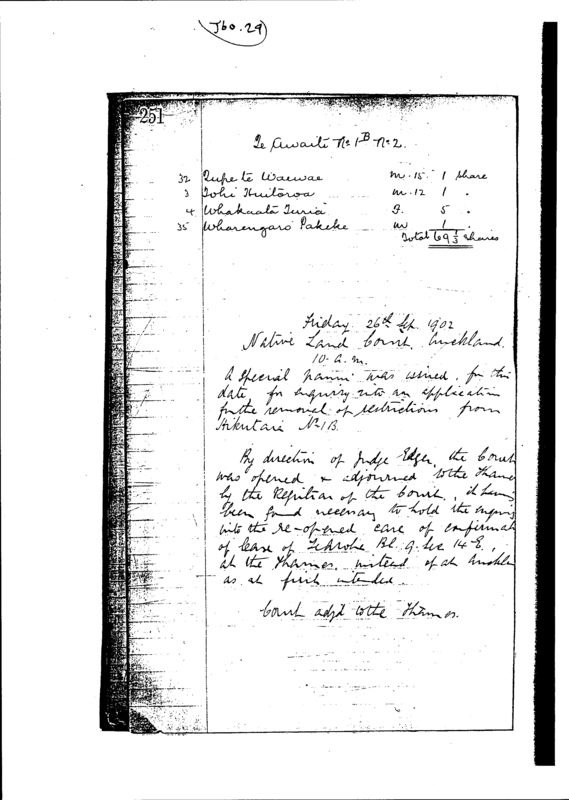 J60.29
251
Te Awaiti No 1B No 2.
32 Rupe te Waewae m.15. 1 share
3 Tohi Huitoroa m.12 1 .
4 Whakaata Turia F. 5 .
35 Wharengaro Pakeke m 1 .
Total 69 1/3 shares
Friday 26th Sep. 1902
Native Land Court, Auckland.
10. a.m.
A special panui was issued, for this
date, for enquiry into an application
for the removal of restrictions from
No 1B.
By direction of Judge Edger, the Court
was opened & adjourned to the Thames
by the Registrar of the Court, it having
been found necessary to hold the enquiry
into the re-opened case of confirmat
of lease of Te Aroha Bl. 9. Sec 14 E,
at the Thames, instead of at Auckla
as at first intended.
Court adjd to the Thames.